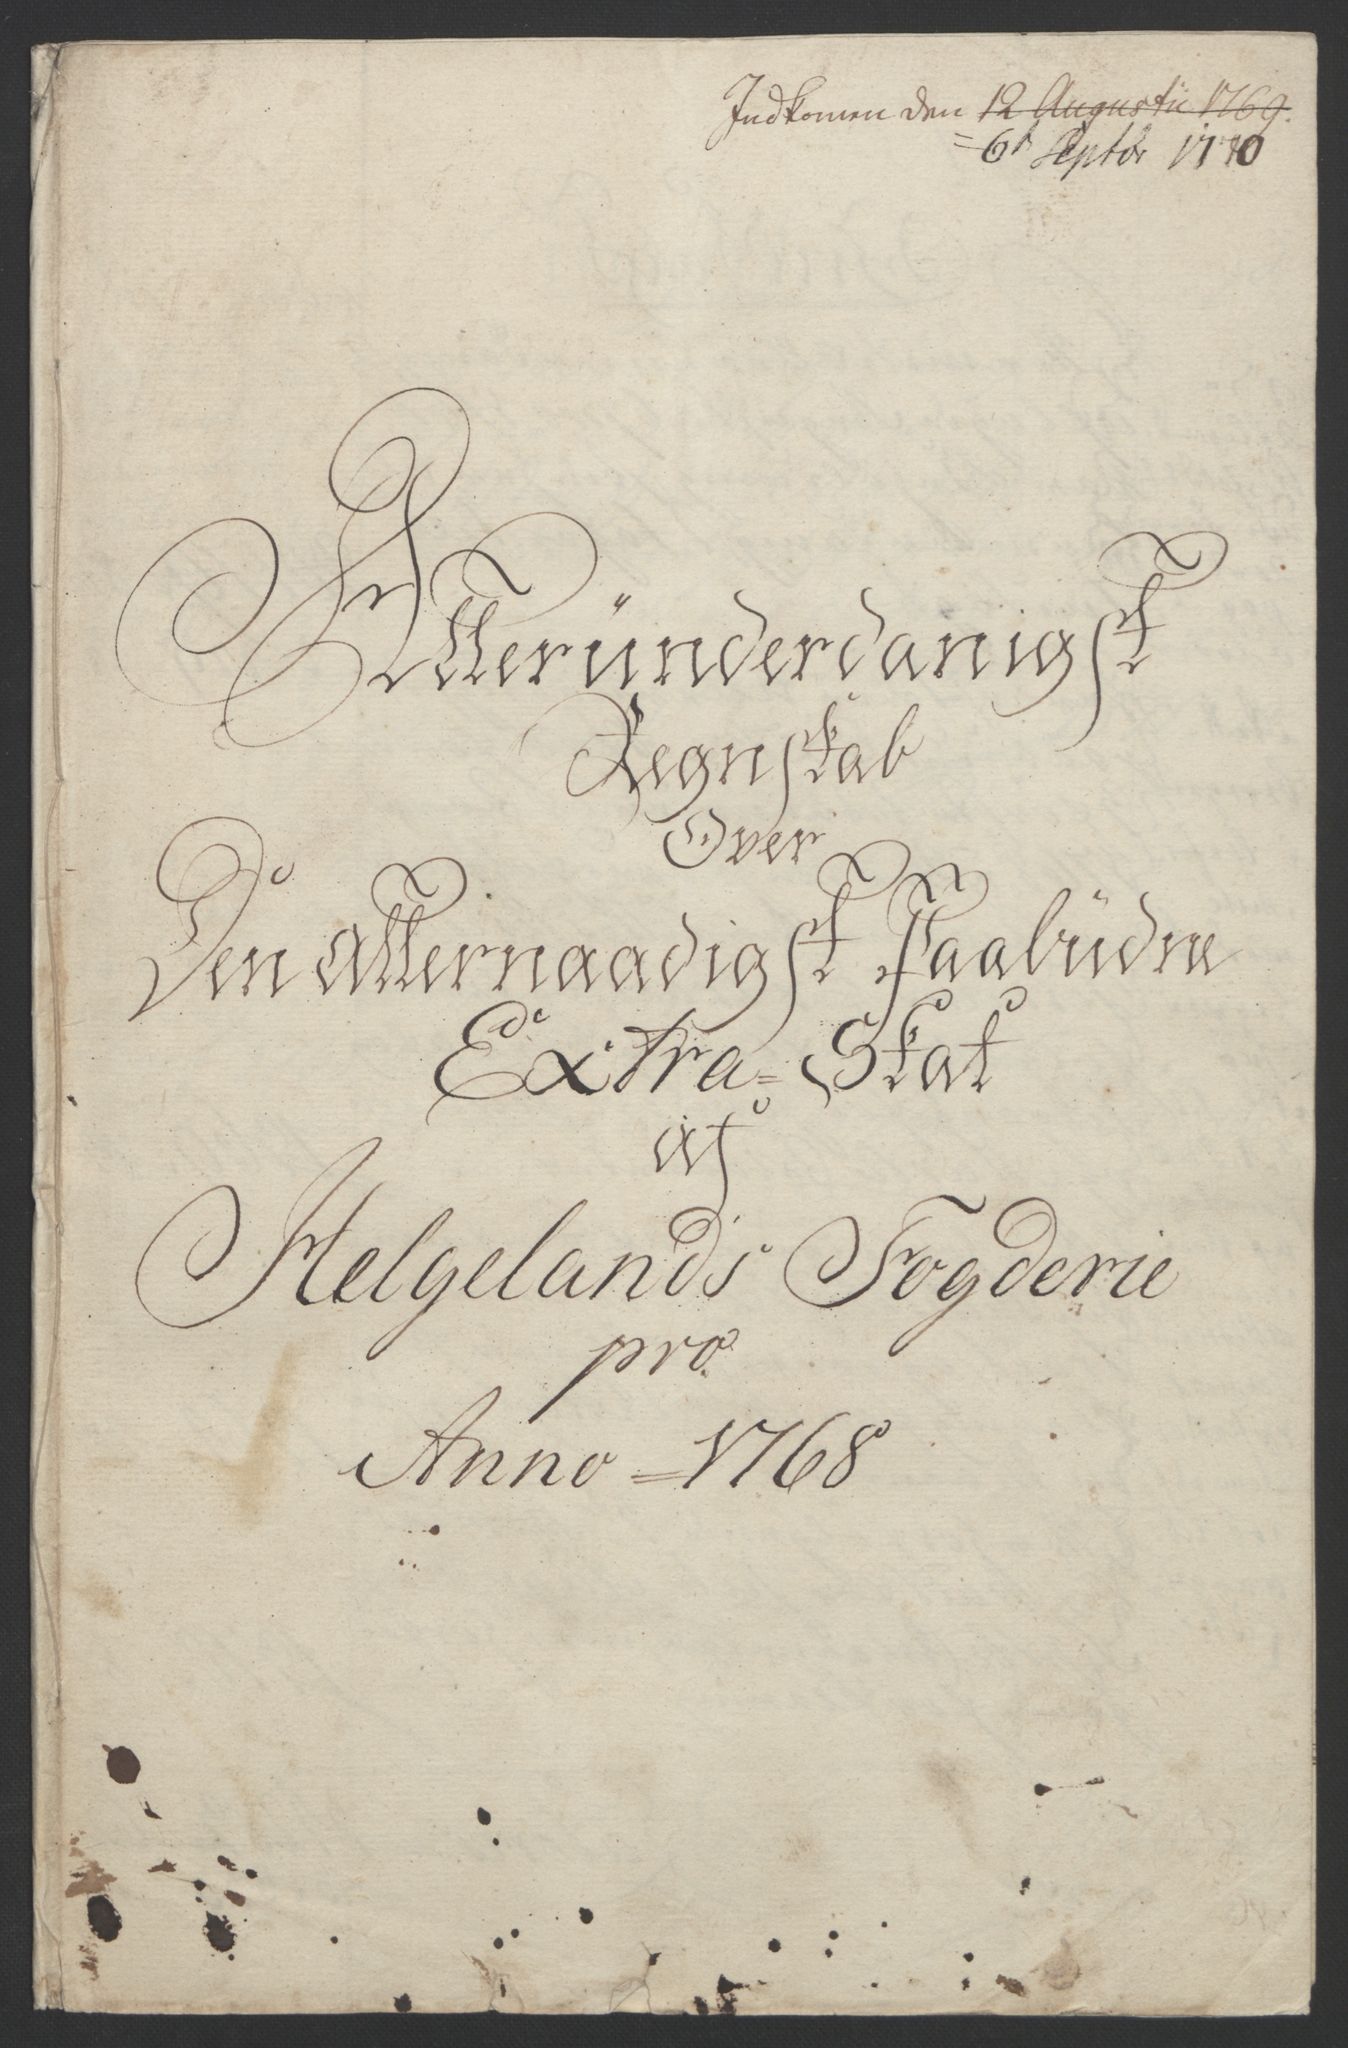 Indkomen den 12 Augustii 1769.
= 6t Septbr 1770
Alleründerdanigst
Regnskab
Over
Den allernaadigst Paabüdne
Extra=Skat
af
Helgelands Fogderie
pro.
Anno = 1768